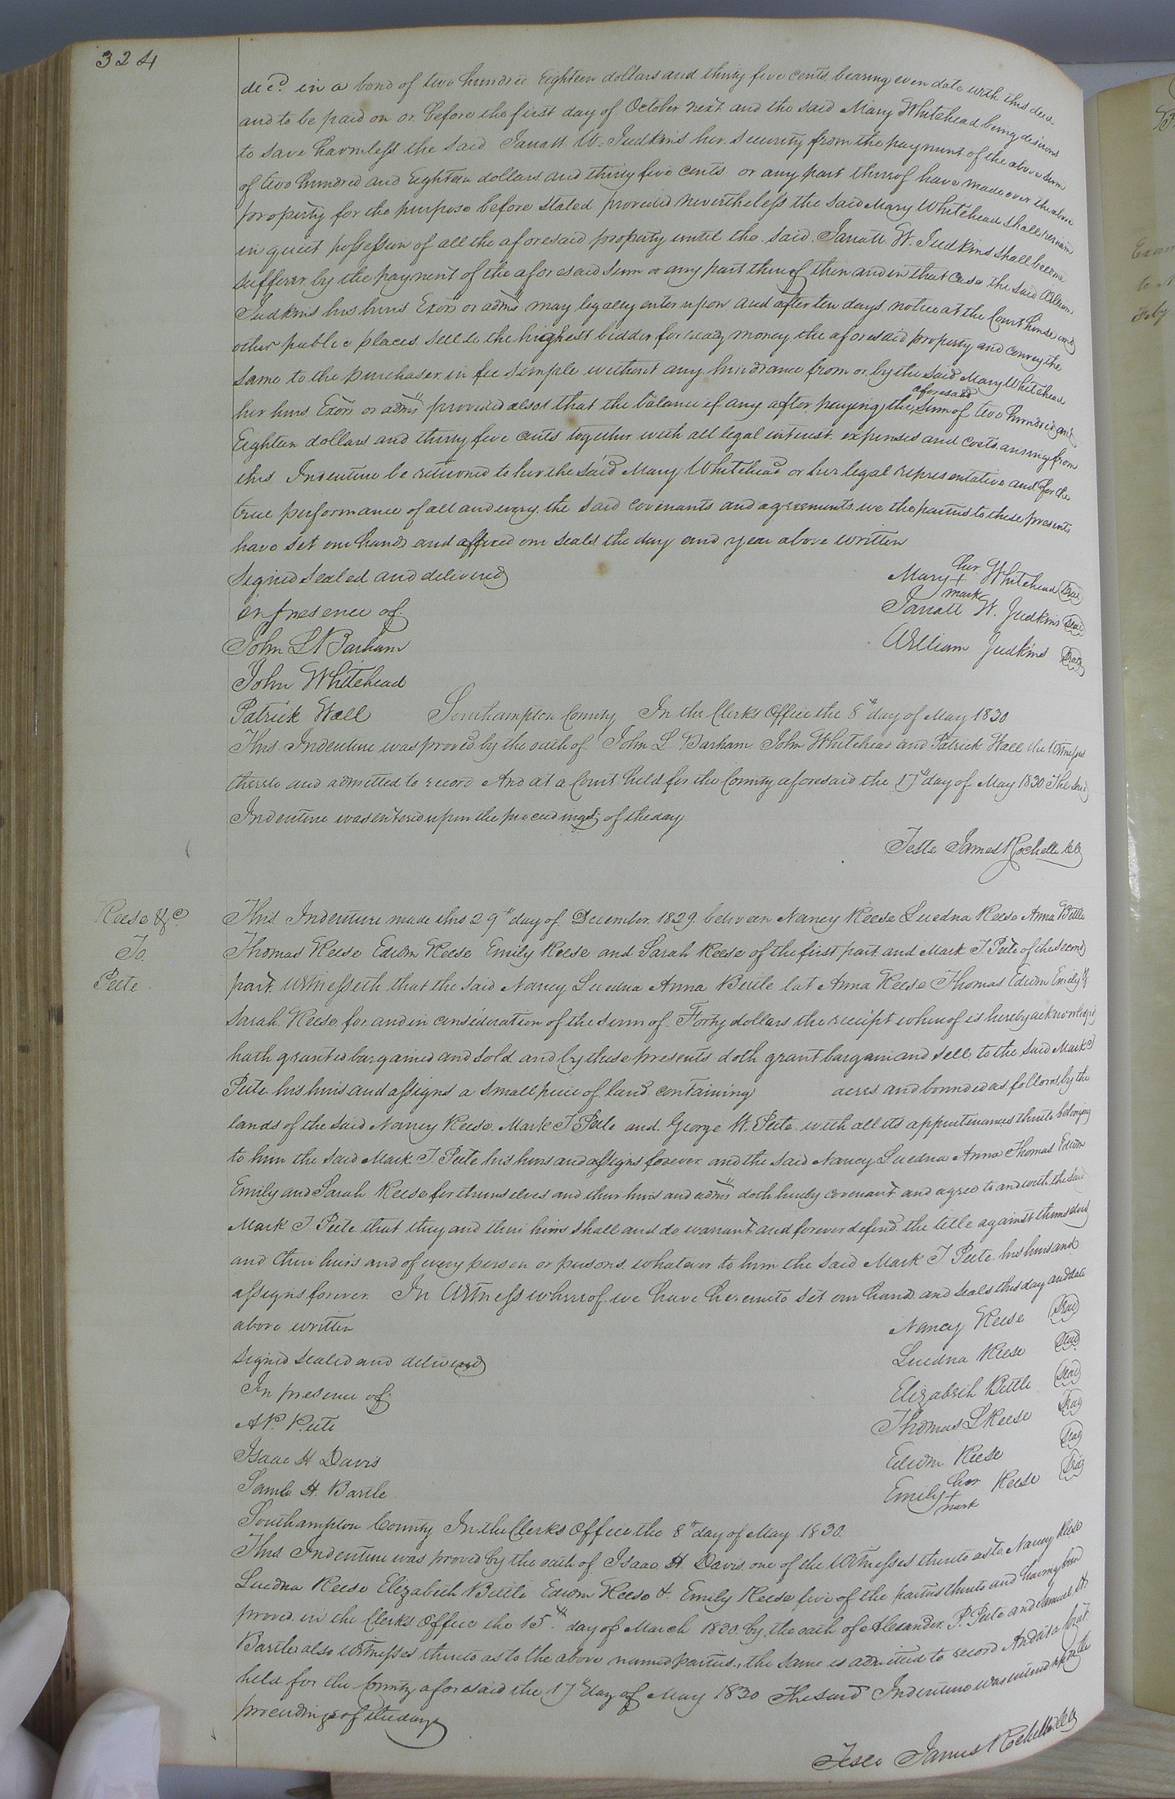 324
dec'd. in a bond of two hundred Eighteen dollars and thirty five cents bearing even date with this deed
and to be paid on or before the first day of October next and the said Mary Whitehead being desirous
to save harmless the said Jarratt W. Judkins her security from the payment of the above sum
of two hundred and Eighteen dollars and thirty five cents or any part thereof have made over the above
property for the purpose before stated provided nevertheless the said Mary Whitehead shall remain
in quiet possession of all the aforesaid property until the said Jarratt W. Judkins shall become
sufferer by the payment of the aforesaid sum or any part thereof then and in that case the said William
Judkins his heirs Exors or adms may legally enter upon and after ten days notice at the Court house and
other public places sell to the highest bidder for ready money the aforesaid property and convey the
same to the purchaser in fee simple without any hindrance from or by the said Mary Whitehead
her heirs Exors or adms provided also that the balance if any after paying the aforesaid sum of two hundred and
Eighteen dollars and thirty five cents together with all legal interest expenses and costs arising from
this Indenture be returned to her the said Mary Whitehead or her legal representative and for the
true performance of all and every the said covenants and agreements we the parties to these presents
have set our hands and affixed our seals the day and year above written
Signed Sealed and delivered
in presence of
John L Barham
John Whitehead
Patrick Wall
Mary her + mark Whitehead Seal
Jarratt W. Judkins Seal
William Judkins Seal
Southampton County In the Clerks Office the 8th day of May 1830
This Indenture was proved by the oath of John L Barham John Whitehead and Patrick Wall the Witnesses
thereto and admitted to record And at a Court held for the County aforesaid the 17th day of May 1830 The said
Indenture was entered upon the proceedings of the day
Teste James Rochelle clk
Reese &c
To
Peete
This Indenture made this 29th day of December 1829 between Nancy Reese Luedna Reese Anna Bittle
Thomas Reese Edwin Reese Emily Reese and Sarah Reese of the first part and Mark T Peete of the second
part Witnesseth that the said Nancy Luedna Anna Bittle lat Anna Reese Thomas Edwin Emily &
Sarah Reese for and in consideration of the sum of Forty dollars the receipt whereof is hereby acknowledged
hath granted bargained and sold and by these presents doth grant bargain and sell to the said Mark T
Peete his heirs and assigns a small piece of land containing acres and bounded as follows, by the
lands of the said Nancy Reese, Mark T Peete and George W. Peete with all its appurtenances thereto belonging
to him the said Mark T Peete his heirs and assigns forever and the said Nancy Luedna Anna Thomas Edwin
Emily and Sarah Reese for themselves and their heirs and adms doth hereby covenant and agree to and with the said
Mark T Peete that they and their heirs shall and do warrant and forever defend the title against themselves
and their heirs and of every person or persons whatever to him the said Mark T Peete his heirs and
assigns forever. In Witness whereof we have hereunto set our hands and seals this day and date
above written
Signed Sealed and delivered
In presence of
A P. Peete
Isaac H Davis
Saml. H. Barlle
Nancy Reese Seal
Luedna Reese Seal
Elizabeth Bittle Seal
Thomas L Reese Seal
Edwin Reese Seal
Emily her + mark Reese Seal
Southampton County In the Clerks Office the 8th day of May 1830
This Indenture was proved by the oath of Isaac H Davis one of the Witnesses thereto as to Nancy Reese
Luedna Reese Elizabeth Bittle Edwin Reese & Emily Reese five of the parties thereto and having been
proved in the Clerks Office the 15th day of March 1830 by the oath of Alexander P. Peete and Samuel H
Barlle also Witnesses thereto as to the above named parties, the same is admitted to record And at a Court
held for the County aforesaid the 17th day of May 1830 The said Indenture was entered upon the
proceedings of the day
Teste James Rochelle clk